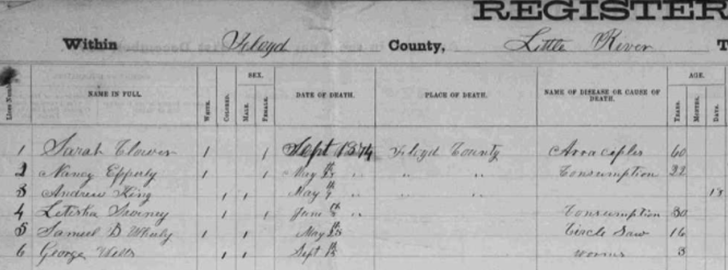 REGISTER
Within Floyd County, Little River
Lines Number. NAME IN FULL. WHITE. COLORED. SEX. MALE. FEMALE. DATE OF DEATH. PLACE OF DEATH. NAME OF DISEASE OR CAUSE OF DEATH. AGE. YEARS. MONTHS. DAYS.
1 Sarah 1 1 Sept 1874 Floyd County 60
2 Nancy Epperly 1 1 May " " " Consumption 22
3 Andrew King 1 1 May " " "
4 Letisha 1 1 June " Consumption 30
5 Samuel D 1 1 May " Circle Saw 16
6 George 1 1 Sept worms 3